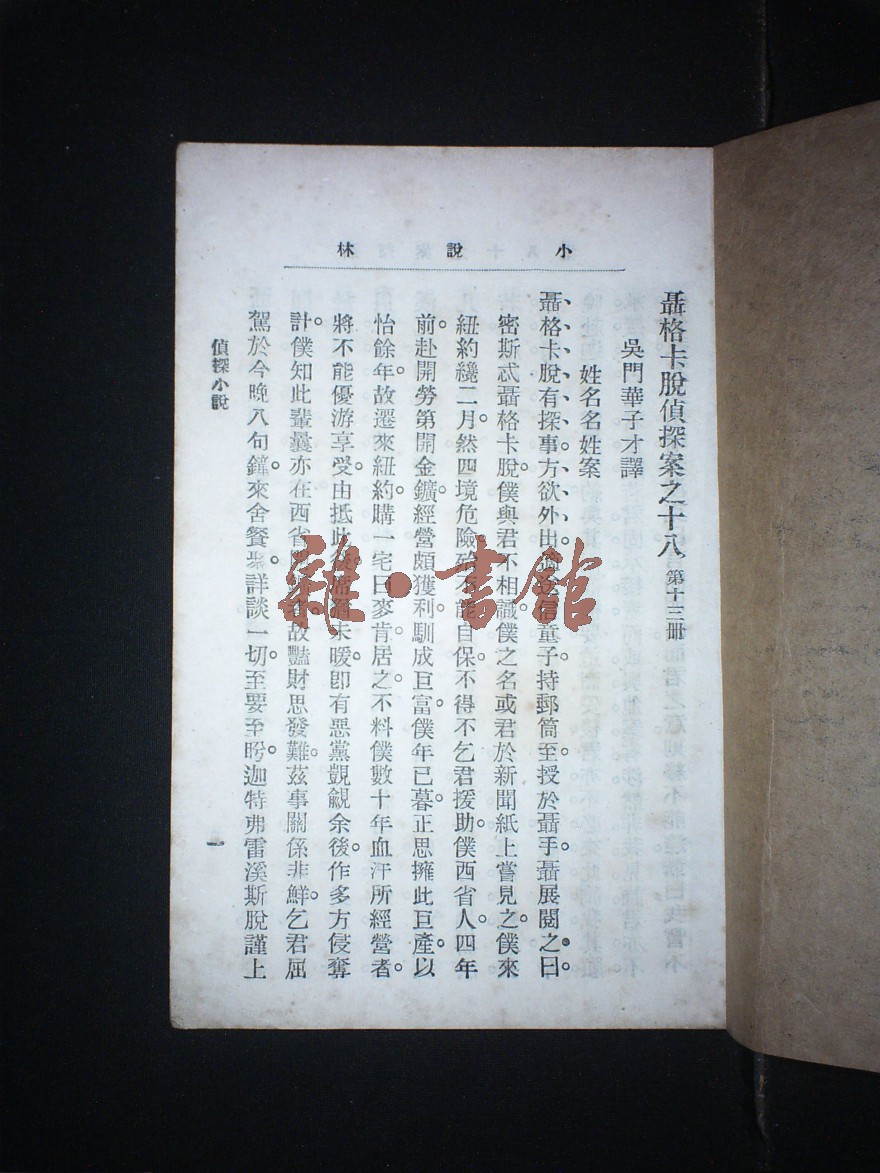 小說林
聶格卡脫偵探案之十八 第十三冊
吳門華子才譯
姓名名姓案
聶格卡脫有探事方欲外出信童子持郵筒至授於聶手聶展閱之曰
密斯忒聶格卡脫僕與君不相識僕之名或君於新聞紙上嘗見之僕來
紐約纔二月然四境危險殆不能自保不得不乞君援助僕西省人四年
前赴開勞第開金鑛經營頗獲利馴成巨富僕年已暮正思擁此巨產以
怡餘年故遷來紐約購一宅曰麥肯居之不料僕數十年血汗所經營者
將不能優游享受由抵此後席未暖卽有惡黨覬覦余後作多方侵奪
計僕知此輩曩亦在西省故豔財思發難茲事關係非鮮乞君屈
駕於今晚八句鐘來舍餐聚詳談一切至要至盼迦特弗雷溪斯脫謹上
偵探小說
一
雜·書館